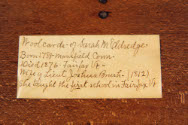 Wool cards of Sarah M Eldredge
Born 1788 Mansfield Conn.
Died 1872 Fairfax Vt
Wife of Lieut Joshua Brush (1812)
She taught the first school in Fairfax Vt